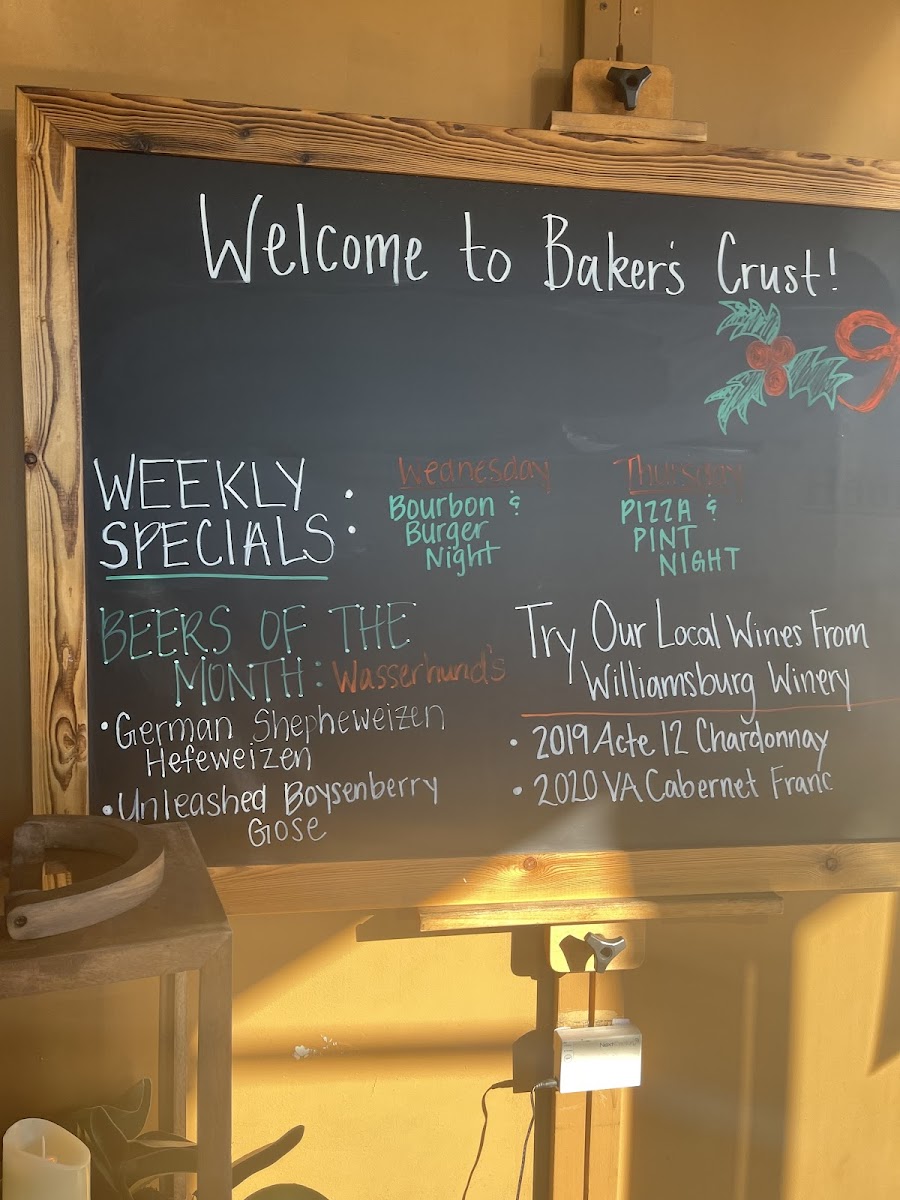 Welcome to Baker's Crust!
WEEKLY
SPECIALS:
Wednesday
Bourbon &
Burger
Night
Thursday
PIZZA &
PINT
NIGHT
BEERS OF THE
MONTH: Wasserhund's
• German Shepheweizen
Hefeweizen
• Unleashed Boysenberry
Gose
Try Our Local Wines From
Williamsburg Winery
• 2019 Acte 12 Chardonnay
• 2020 VA Cabernet Franc